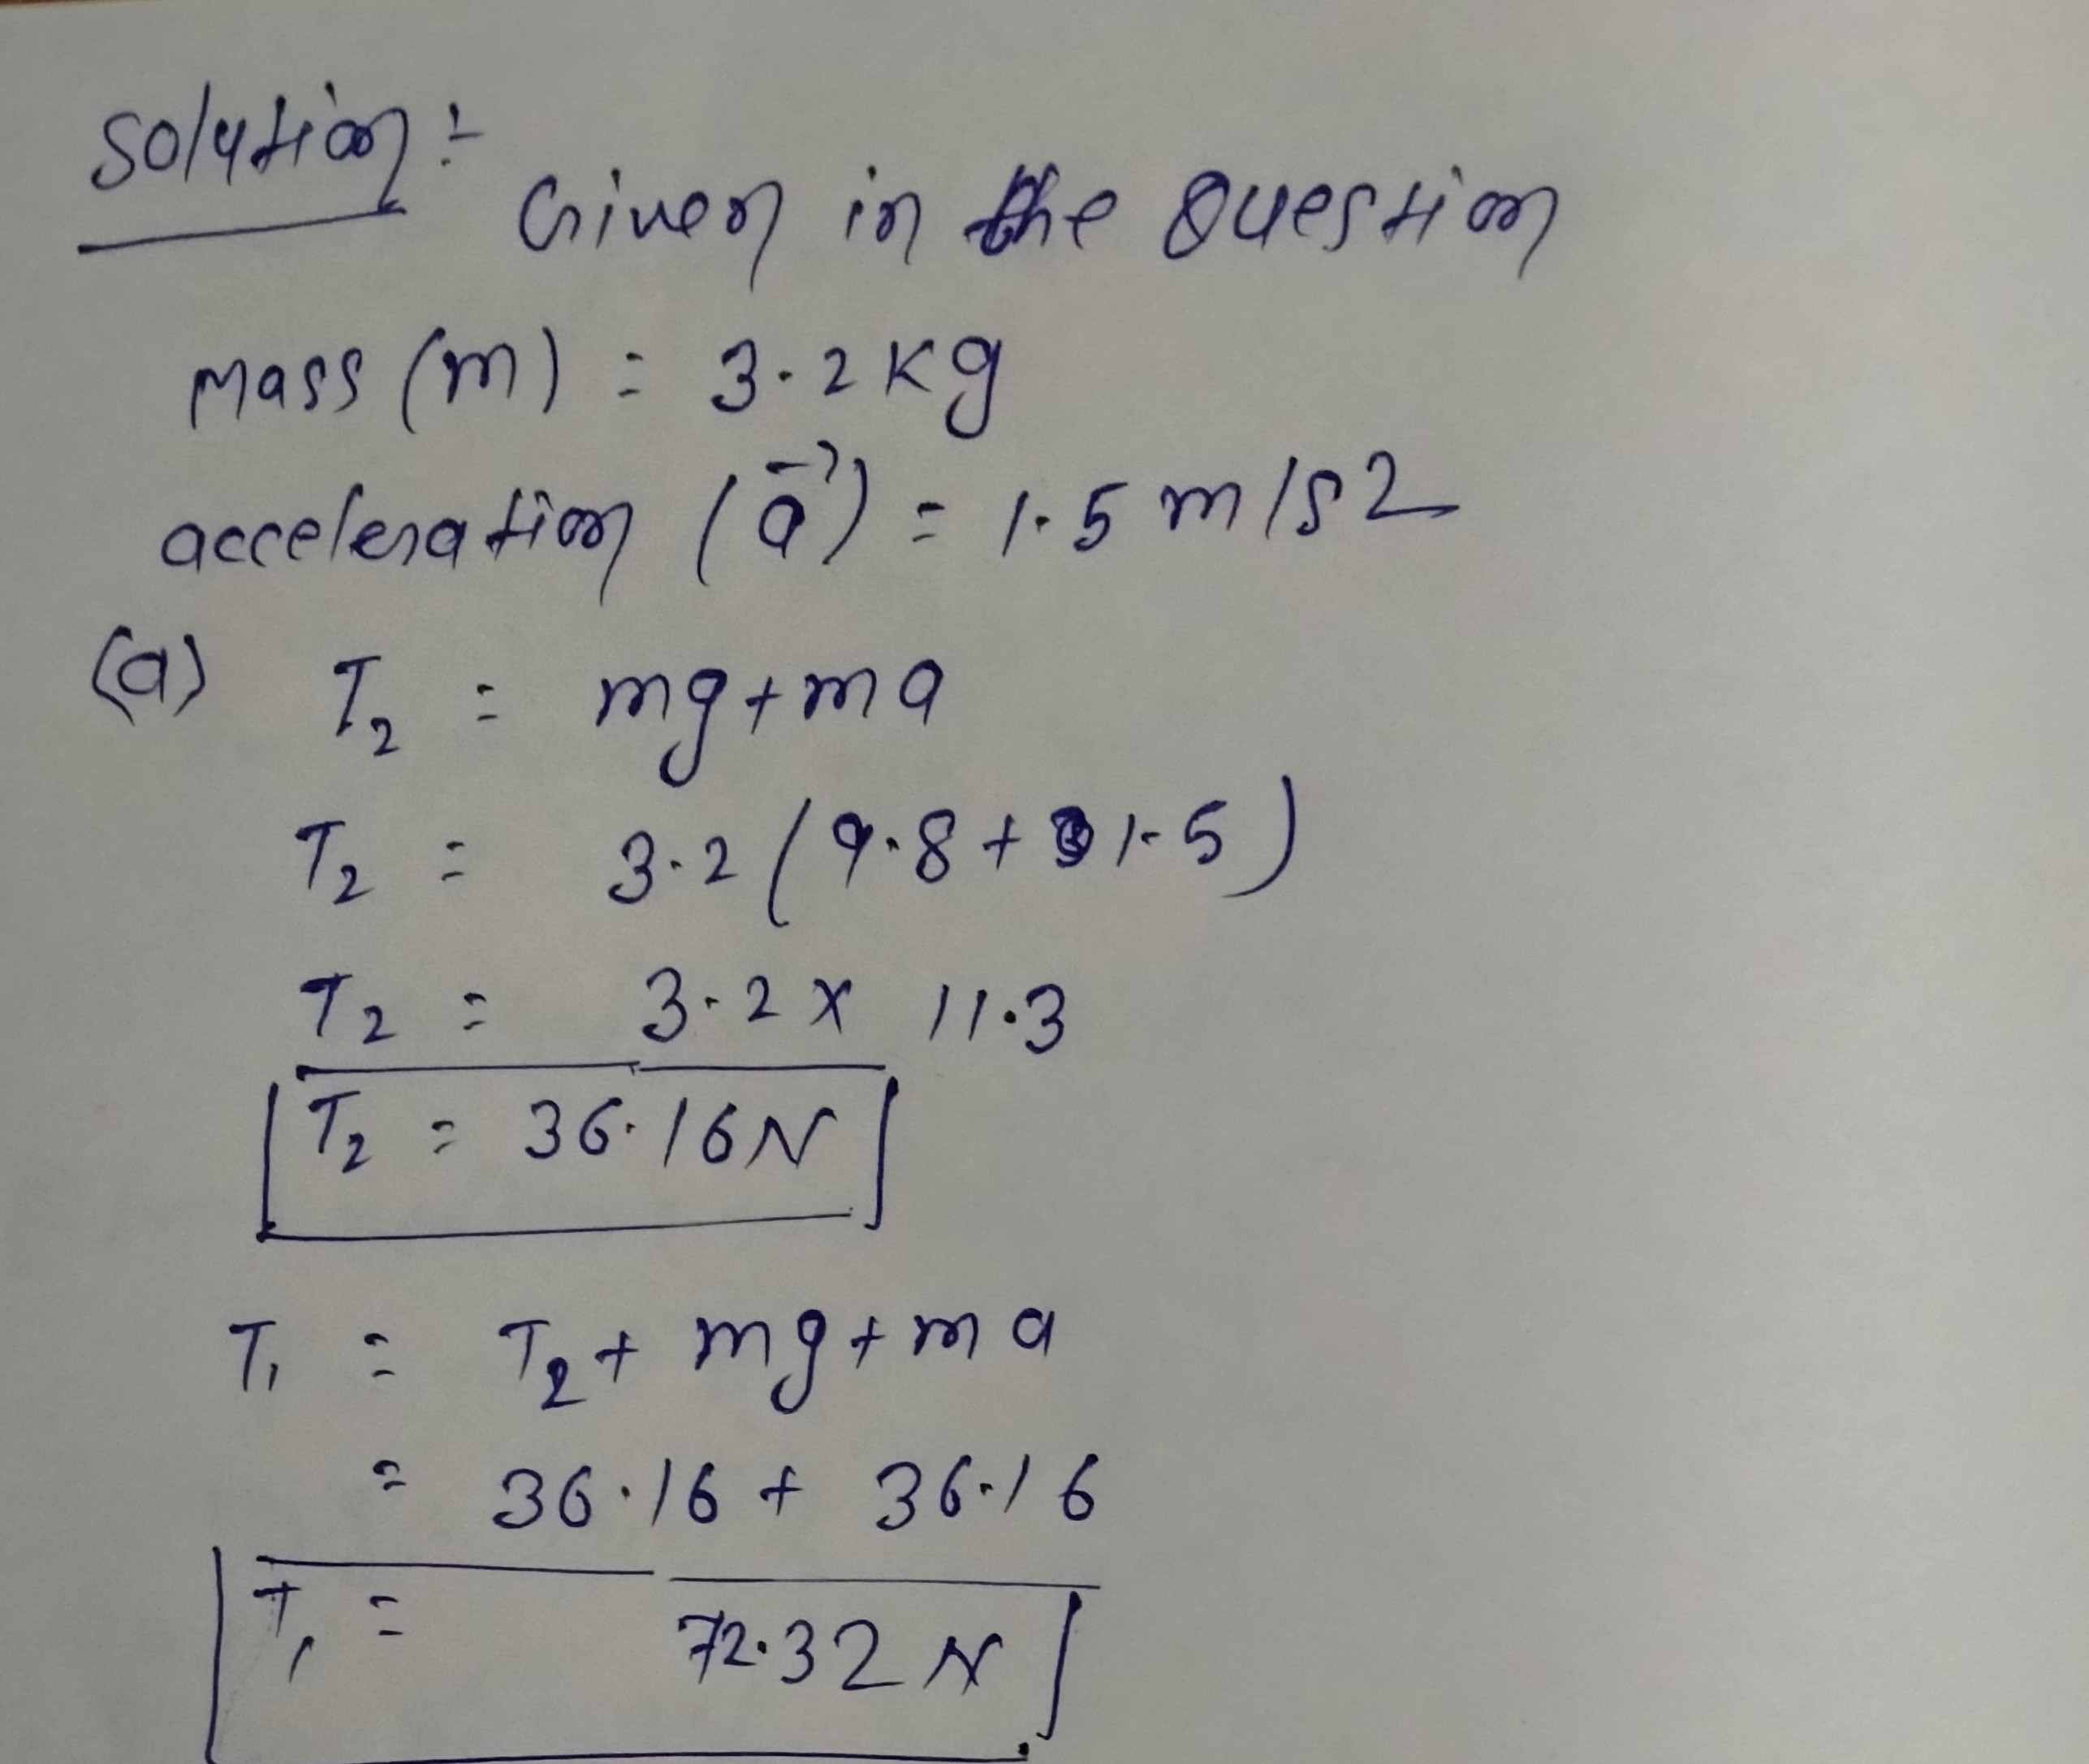 Solution :-
Given in the Question
Mass (m) = 3.2 Kg
acceleration (a⃗) = 1.5 m/s2
(a) T₂ = mg + ma
T₂ = 3.2 (9.8 + 1.5)
T₂ = 3.2 x 11.3
T₂ = 36.16 N
T₁ = T₂ + mg + ma
= 36.16 + 36.16
T₁ = 72.32 N